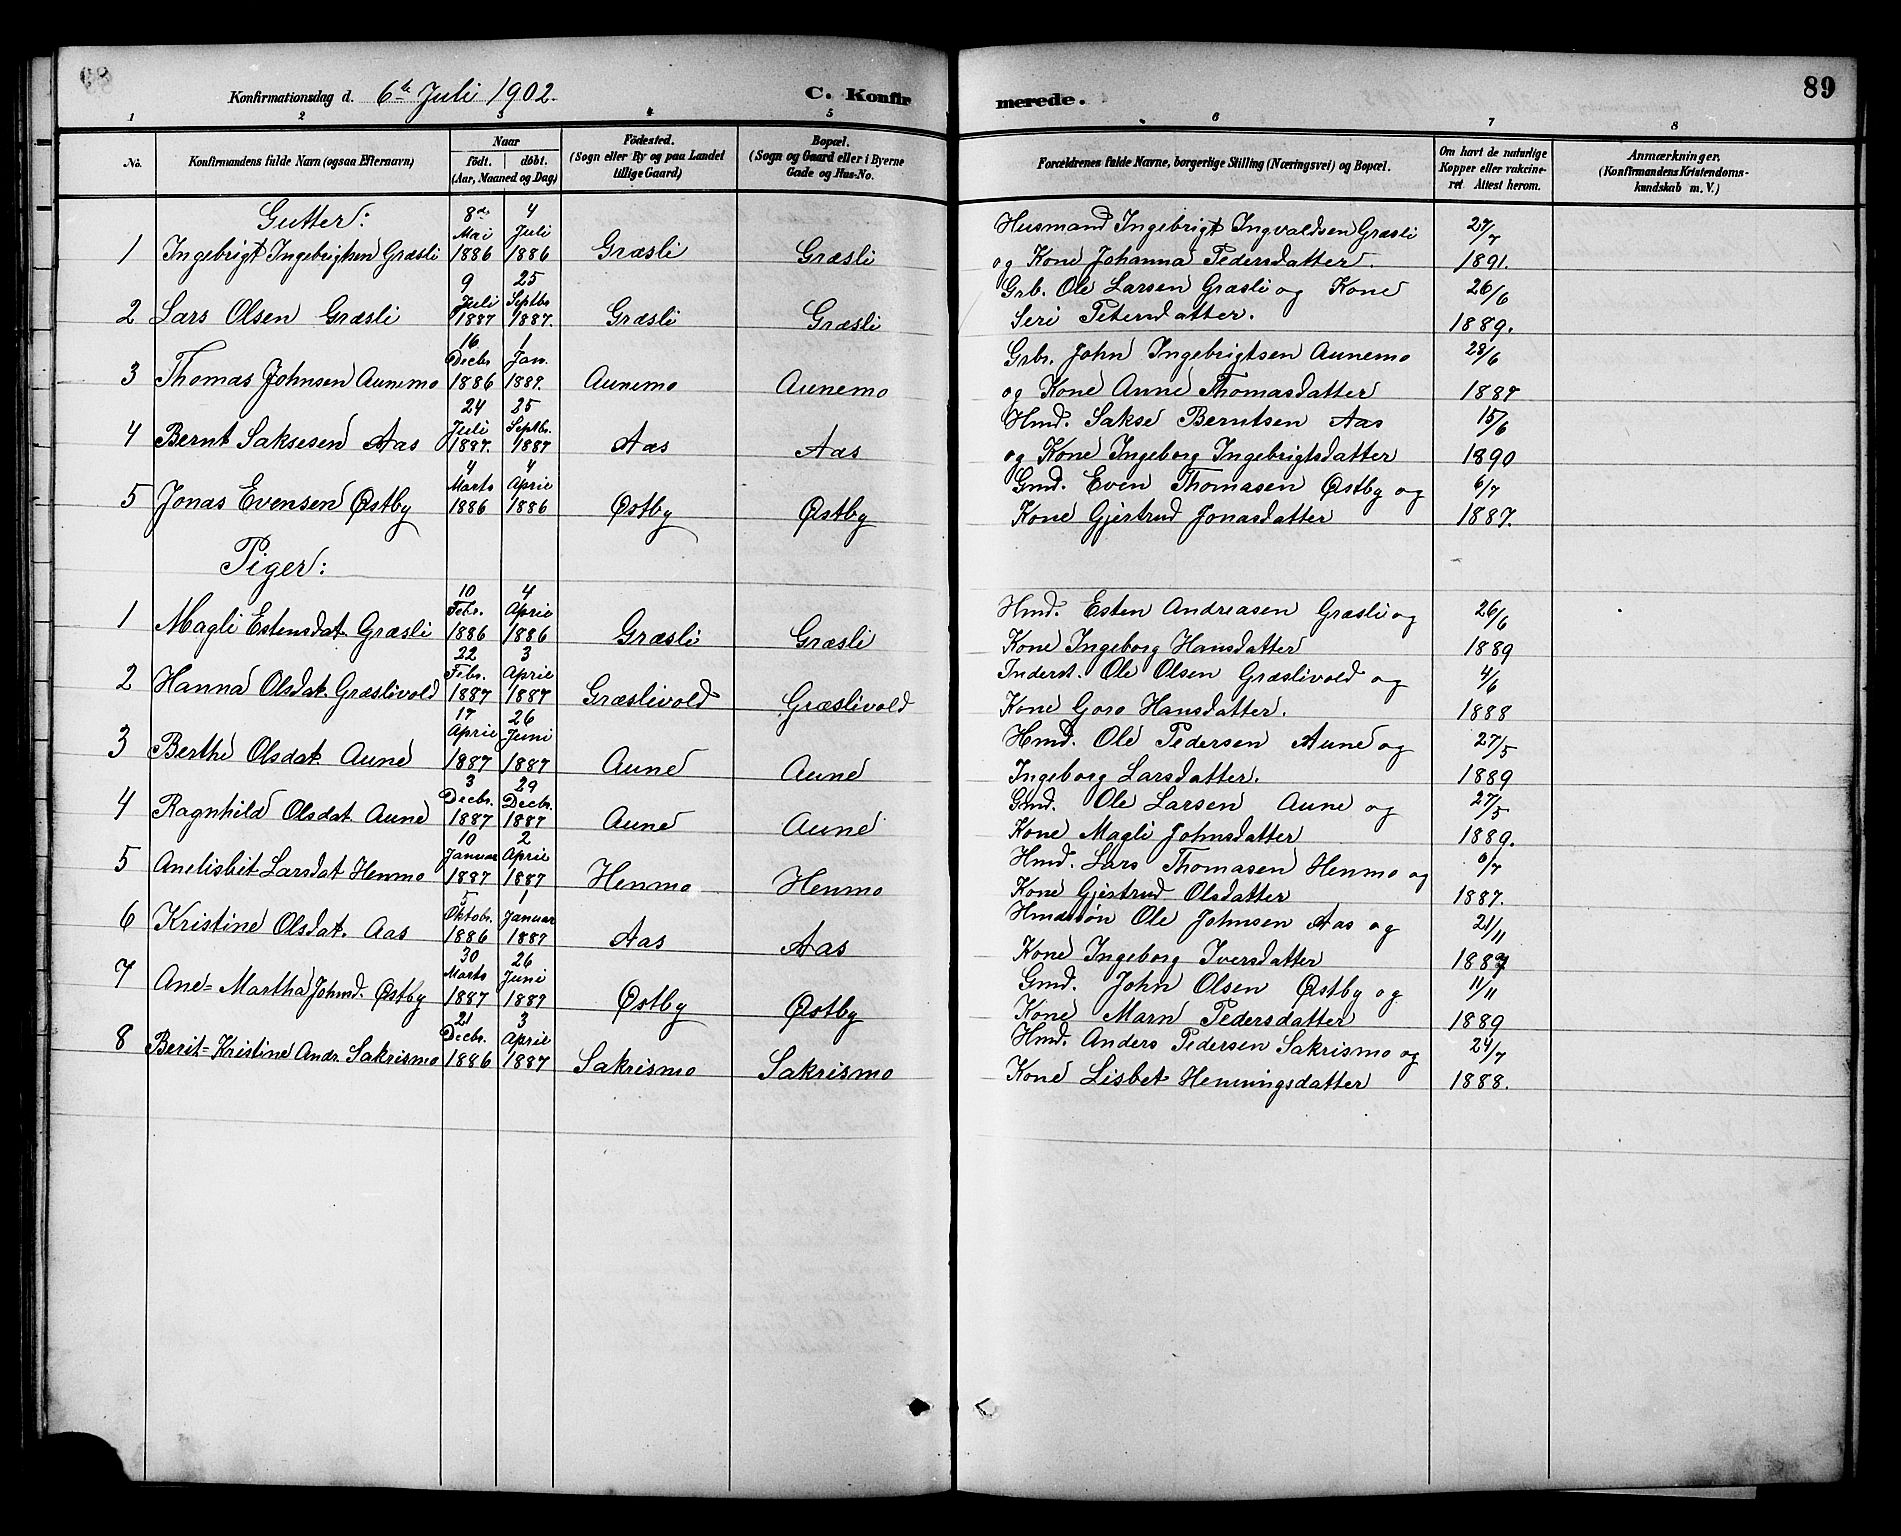 Konfirmationsdag d. 6te Juli 1902. C. Konfirmerede. 89
1 2 3 4 5 6 7 8
No. Konfirmandens fulde Navn (ogsaa Efternavn) Naar födt. döbt. (Aar, Maaned og Dag) Födested. (Sogn eller By og paa Landet tillige Gaard) Bopæl. (Sogn og Gaard eller i Byerne Gade og Hus-No. Forældrenes fulde Navne, borgerlige Stilling (Næringsvei) og Bopæl. Om havt de naturlige Kopper eller vakcineret. Attest herom. Anmærkninger. (Konfirmandens Kristendomskundskab m. V.)
Gutter:
1 Ingebrigt Ingebrigtsen Græsli 8de Mai 1886 4 Juli 1886 Græsli Græsli Husmand Ingebrigt Ingvaldsen Græsli og Kone Johanna Pedersdatter. 27/7 1891.
2 Lars Olsen Græsli 9 Juli 1887 25 Septbr 1887. Græsli Græsli Grb. Ole Larsen Græsli og Kone Seri Petersdatter. 26/6 1889.
3 Thomas Johnsen Aunemo 16 Decbr 1886 1 Jan. 1887. Aunemo Aunemo Grbr. John Ingebrigtsen Aunemo og Kone Anne Thomasdatter 28/6 1887
4 Bernt Saksesen Aas 24 Juli 1887. 25 Septbr. 1887 Aas Aas Hmd. Sakse Berntsen Aas og Kone Ingeborg Ingebrigtsdatter 15/6 1890
5 Jonas Evensen Østby 4 Marts 1886 4 April 1886 Østby Østby Gmd. Even Thomasen Østby og Kone Gjertrud Jonasdatter 6/7 1887.
Piger:
1 Magli Estensdat. Græsli 10 Febr. 1886 4 April 1886 Græsli Græsli Hmd. Esten Andreasen Græsli og Kone Ingeborg Hansdatter 26/6 1889
2 Hanna Olsdat. Græslivold 22 Febr. 1887 3 April 1887 Græslivold Græslivold Inderst. Ole Olsen Græslivold og Kone Goro Hansdatter. 4/6 1888
3 Berthe Olsdat. Aune 17 April 1887 26 Juni 1887 Aune Aune Hmd. Ole Pedersen Aune og Ingeborg Larsdatter. 27/5 1889
4 Ragnhild Olsdat. Aune 3 Decbr. 1887 29 Decbr. 1887 Aune Aune Gmd. Ole Larsen Aune og Kone Magli Johnsdatter 27/5 1889.
5 Anelisbet Larsdat Henmo 10 Januar 1887 2 April 1887 Henmo Henmo Hmd. Lars Thomasen Henmo og Kone Gjertrud Olsdatter 1887.
6 Kristine Olsdat. Aas 5 Oktobr. 1886 1 Januar 1887 Aas Aas Hmdssøn Ole Johnsen Aas og Kone Ingeborg Iversdatter 21/11
7 Ane-Martha Johnsd. Østby 30 Marts 1887 26 Juni 1887 Østby Østby Gmd. John Olsen Østby og Kone Marn Pedersdatter 11/11 1889
8 Berit-Kristine Andr. Sakrismo 21 Decbr. 1886 3 April 1887 Sakrismo Sakrismo Hmd. Anders Pedersen Sakrismo og Kone Lisbet Henningsdatter 24/7 1888.